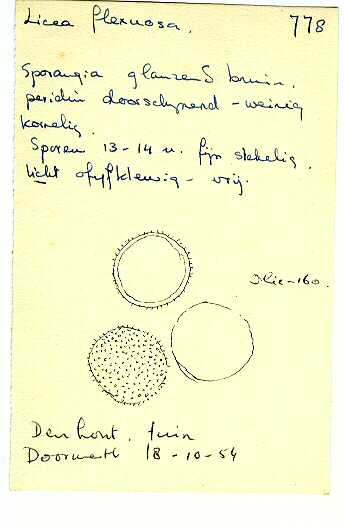 Licea flexuosa. 778
Sporangia glanzend bruin.
peridium doorschijnend - weinig
korrelig.
Sporen 13-14 u. fijn stekelig.
licht olyfkleurig - vrij.
Olie-160.
Den hout. tuin
Doorwerth 18-10-54